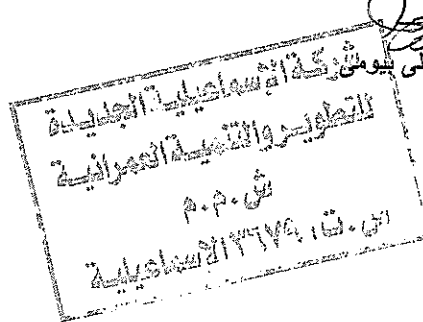 لى بيومى
شركة الإسماعيلية الجديدة
للتطوير والتنمية العمرانية
ش.م.م
س.ت. ٣٦٧٩ الإسماعيلية